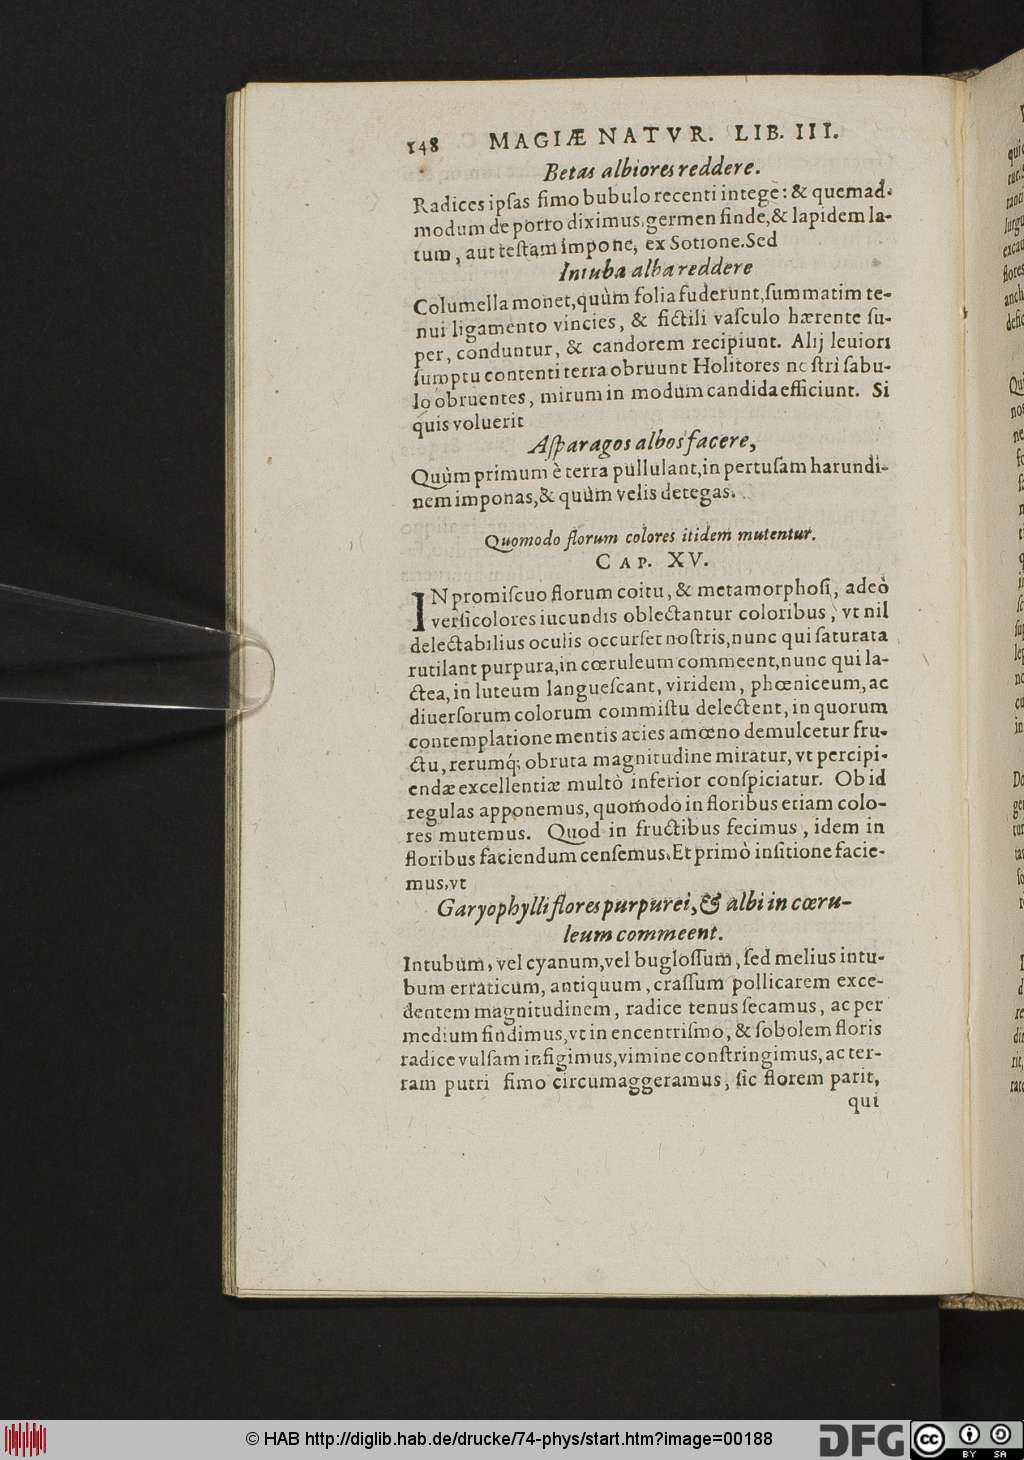 148 MAGIÆ NATVR. LIB. III.
Betas albiores reddere.
Radices ipſas fimo bubulo recenti intege: & quemad-
modum de porro diximus, germen finde, & lapidem la-
tum, aut teſtam impone, ex Sotione. Sed
Intuba alba reddere
Columella monet, quùm folia fuderunt, ſummatim te-
nui ligamento vincies, & fictili vaſculo hærente ſu-
per, conduntur, & candorem recipiunt. Alij leuiori
ſumptu contenti terra obruunt Holitores noſtri ſabu-
lo obruentes, mirum in modum candida efficiunt. Si
quis voluerit
Aſparagos albos facere,
Quùm primum è terra pullulant, in pertuſam harundi-
nem imponas, & quùm velis detegas.
Quomodo florum colores itidem mutentur.
CAP. XV.
IN promiſcuo florum coitu, & metamorphoſi, adeò
verſicolores iucundis oblectantur coloribus, vt nil
delectabilius oculis occurſet noſtris, nunc qui ſaturata
rutilant purpura, in cœruleum commeent, nunc qui la-
ctea, in luteum langueſcant, viridem, phœniceum, ac
diuerſorum colorum commiſtu delectent, in quorum
contemplatione mentis acies amœno demulcetur fru-
ctu, rerumq́; obruta magnitudine miratur, vt percipi-
endæ excellentiæ multò inferior conſpiciatur. Ob id
regulas apponemus, quomodo in floribus etiam colo-
res mutemus. Quod in fructibus fecimus, idem in
floribus faciendum cenſemus. Et primò inſitione facie-
mus, vt
Garyophylli flores purpurei, & albi in cœru-
leum commeent.
Intubum, vel cyanum, vel bugloſſum, ſed melius intu-
bum erraticum, antiquum, craſſum pollicarem exce-
dentem magnitudinem, radice tenus ſecamus, ac per
medium findimus, vt in encentriſmo, & ſobolem floris
radice vulſam infigimus, vimine conſtringimus, ac ter-
ram putri fimo circumaggeramus, ſic florem parit,
qui
© HAB http://diglib.hab.de/drucke/74-phys/start.htm?image=00188
DFG
cc BY SA